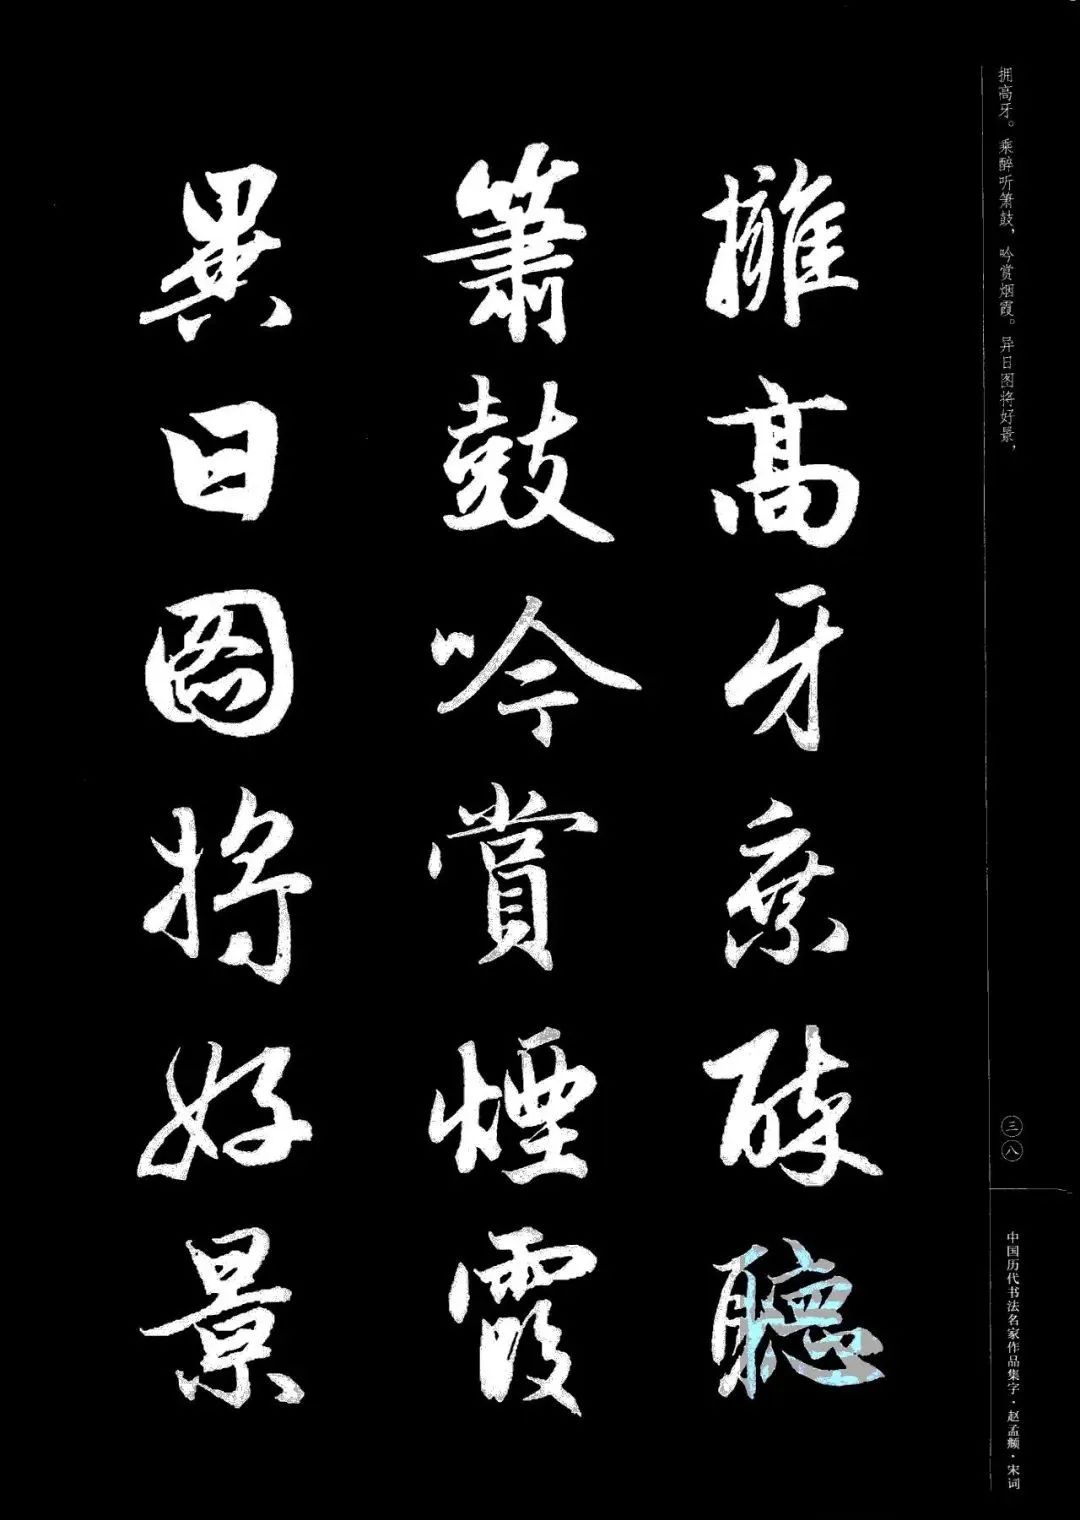 拥高牙。乘醉听箫鼓，吟赏烟霞。异日图将好景，
擁高牙乘醉聽
簫鼓吟賞煙霞
異日圖將好景
三八
中国历代书法名家作品集字·赵孟頫·宋词